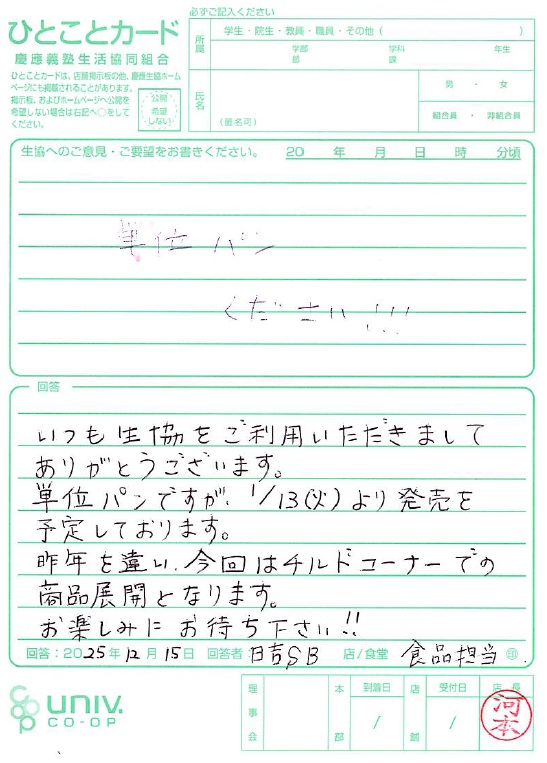 ひとことカード
慶應義塾生活協同組合
ひとことカードは、店舗掲示板の他、慶應生協ホーム
ページにも掲載されることがあります。
掲示板、およびホームページへ公開を
希望しない場合は右記へ○をして
ください。
公開
希望
しない
必ずご記入ください
所属
学生・院生・教員・職員・その他( )
学部 学科 年生
部 課
氏名
(匿名可)
男 ・ 女
組合員 ・ 非組合員
生協へのご意見・ご要望をお書きください。 20 年 月 日 時 分頃
単位パン
ください!!!
回答
いつも生協をご利用いただきまして
ありがとうございます。
単位パンですが、1/13(火)より発売を
予定しております。
昨年を違い、今回はチルドコーナーでの
商品展開となります。
お楽しみにお待ち下さい!!
回答:2025年12月15日 回答者:日吉SB 店/食堂 食品担当 ㊞
univ.
CO-OP
理事会
本部
到着日
/
店舗
受付日
/
店長
河本